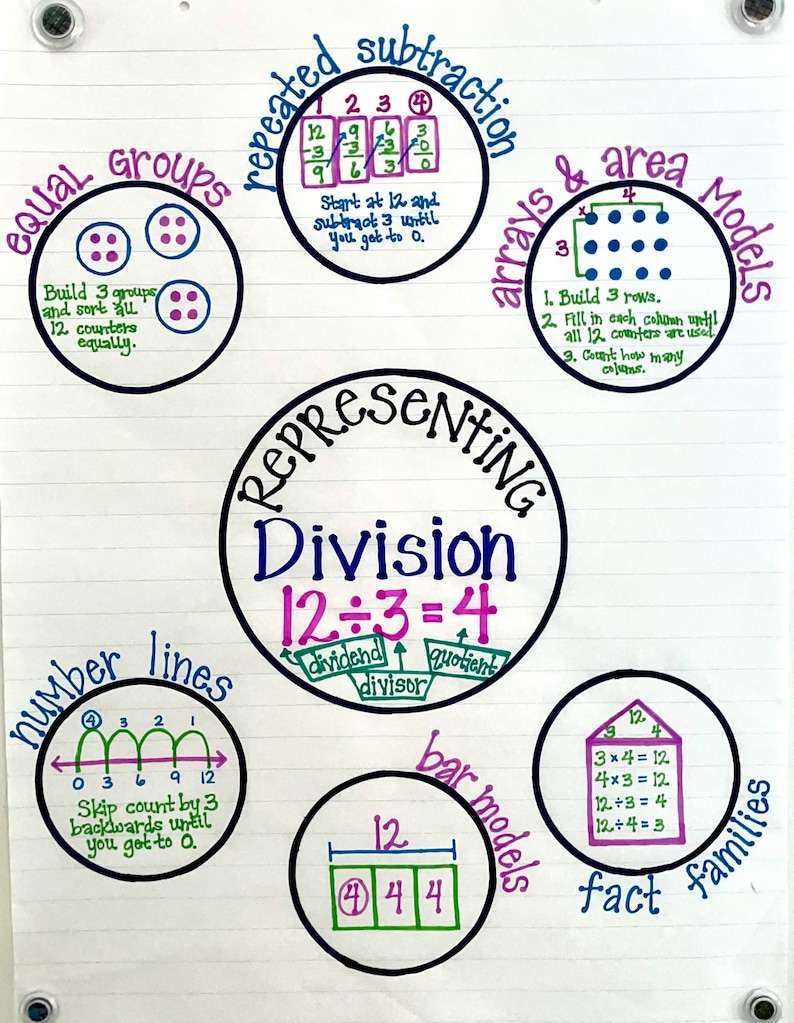 repeated subtraction
1 2 3 4
12 9 6 3
-3 -3 -3 -0
9 6 3 0
Start at 12 and
subtract 3 until
you get to 0.
equal Groups
Build 3 groups
and sort all
12 counters
equally.
arrays & area Models
4
x
3
1. Build 3 rows.
2. Fill in each column until
all 12 counters are used.
3. Count how many
colums.
REPRESENTING
Division
12÷3=4
dividend
divisor
quotient
number lines
4 3 2 1
0 3 6 9 12
Skip count by 3
backwards until
you get to 0.
bar models
12
4 4 4
12
3 4
3×4=12
4×3=12
12÷3=4
12÷4=3
fact families